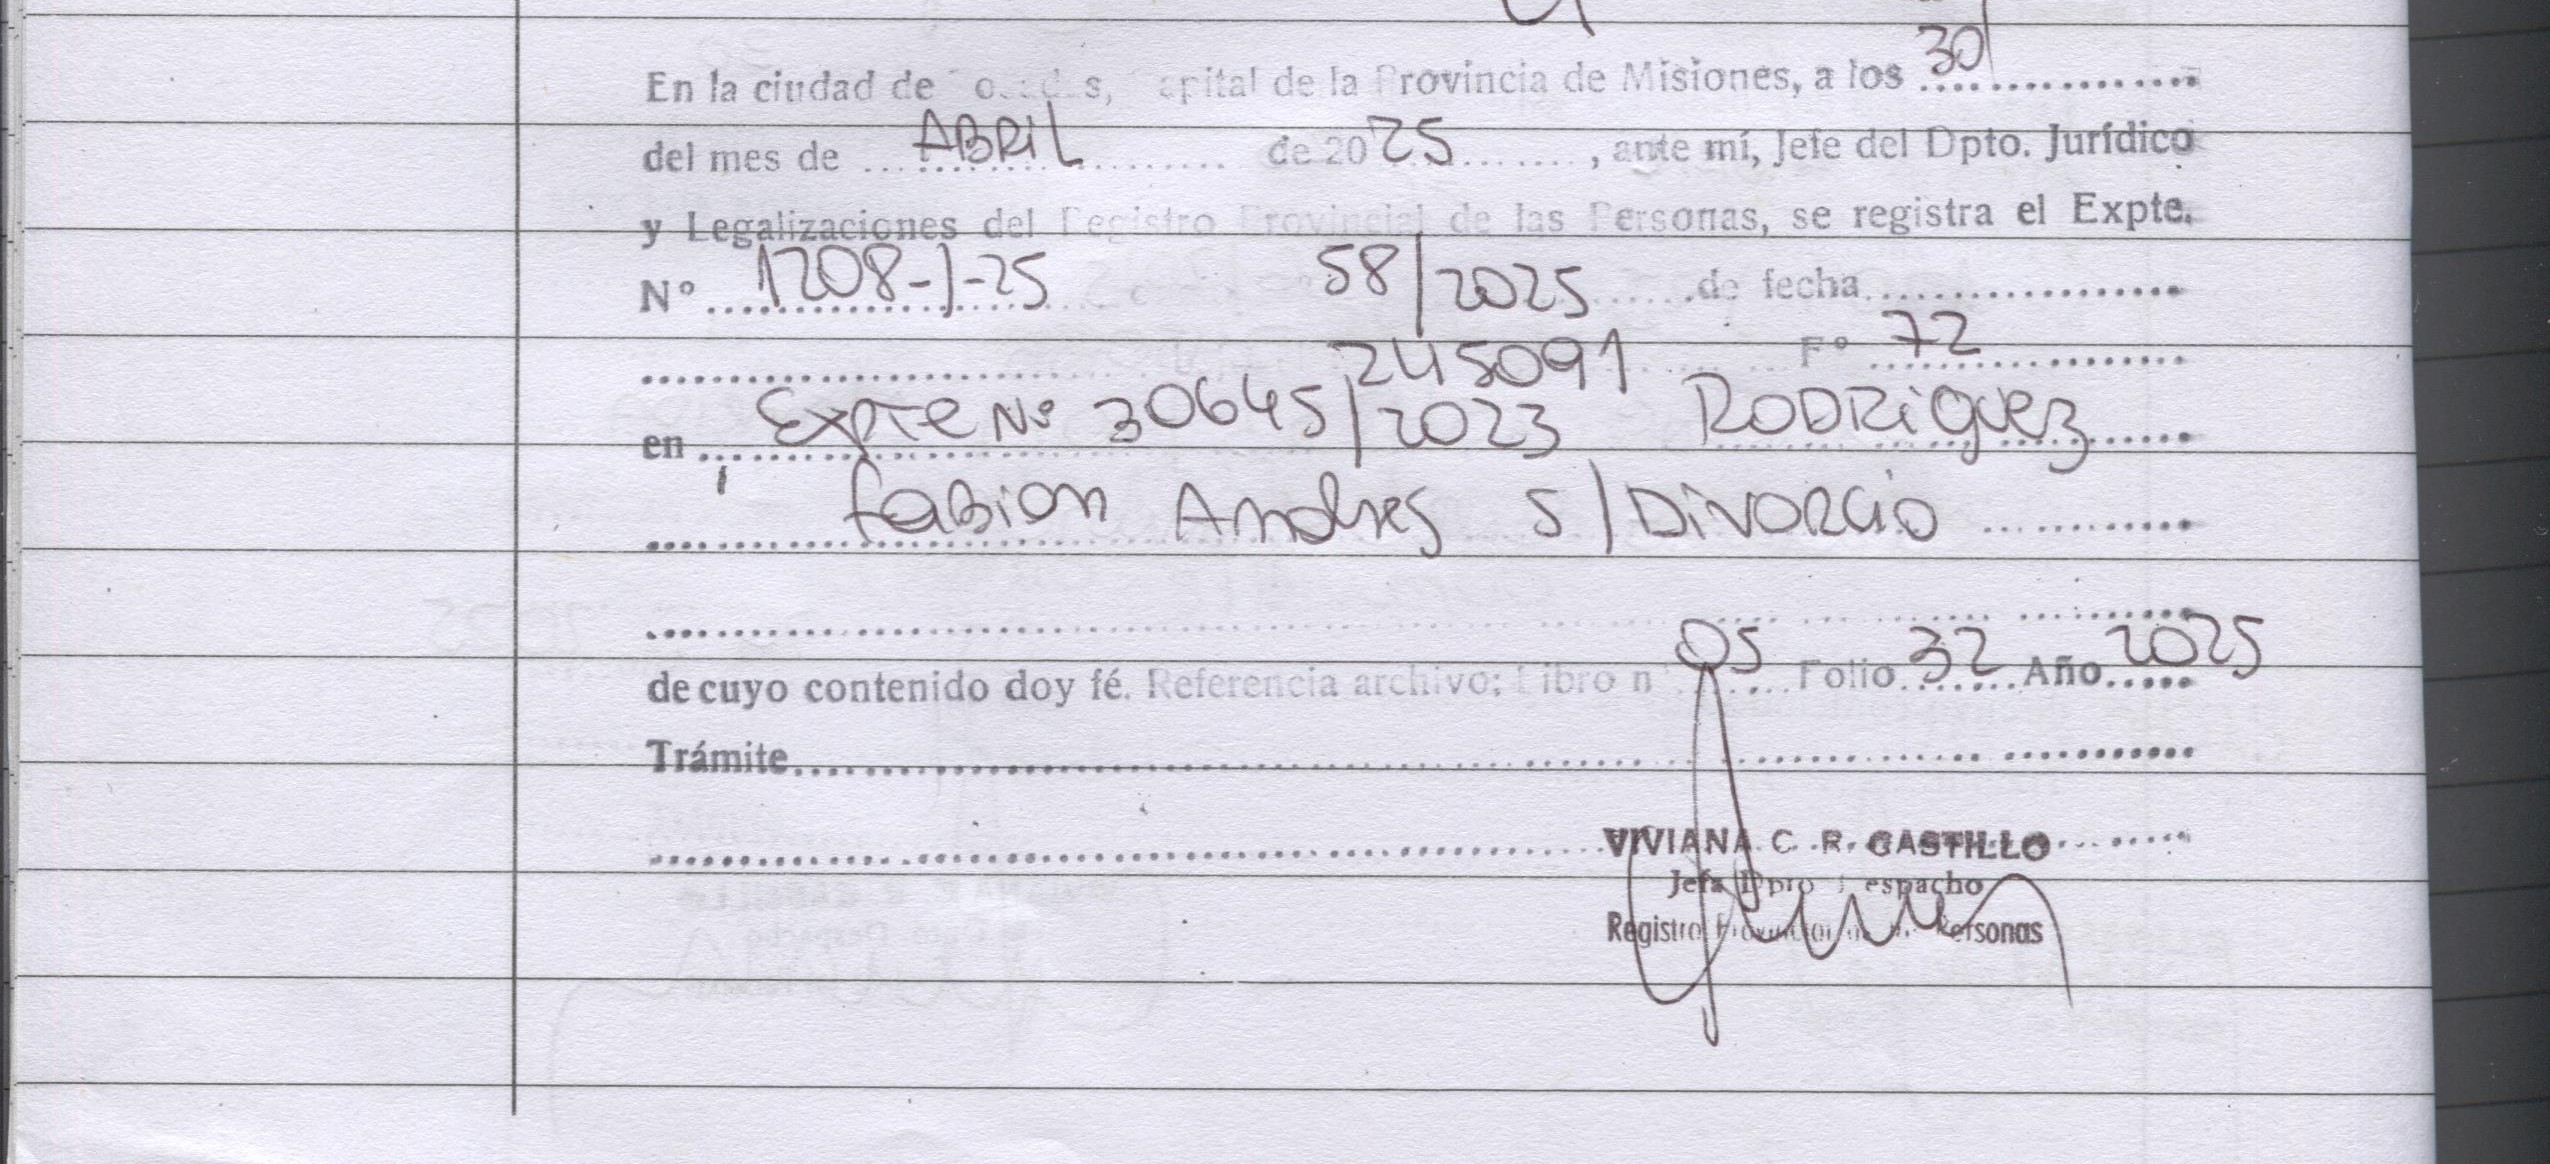 En la ciudad de Posadas, Capital de la Provincia de Misiones, a los 30
del mes de ABRIL de 2025, ante mí, Jefe del Dpto. Jurídico
y Legalizaciones del Registro Provincial de las Personas, se registra el Expte.
Nº 1208-J-25 58/2025 de fecha
245091 Fº 72
en Expte Nº 30645/2023 RODRIGUEZ
Fabian Andres S/DIVORCIO
de cuyo contenido doy fé. Referencia archivo: Libro nº 05 Folio 32 Año 2025
Trámite
VIVIANA C. R. CASTILLO
Jefa Dpto Despacho
Registro Provincial de las Personas